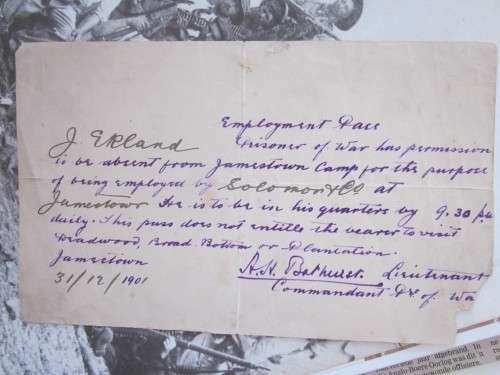 Employment Pass
J. Ekland Prisoner of War has permission
to be absent from Jamestown Camp for the purpose
of being employed by Solomon & Co at
Jamestown He is to be in his quarters by 9.30 p.m
daily. This pass does not entitle the bearer to visit
Deadwood, Broad Bottom or Plantation.
Jamestown
A.H. Bathurst. Lieutenant
31/12/1901
Commandant P. of Wa